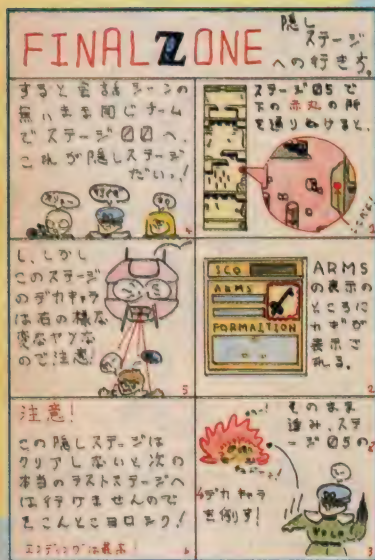 FINAL ZONE
隠し
ステージ
への行き方。
ステージ05で
下の赤丸の所
を通りぬけると、
ARMS
の表示の
ところに
カギが
表示さ
れる。
SCO
ARMS
FORMAITION
2
そのまま
進み、ステ
ージ05の
デカキャラ
を倒す!
3
すると会話シーンの
無いまま同じチーム
でステージ00へ。
これが隠しステージ
だいっ!
4
し、しかし
このステージ
のデカキャラ
は右の様な
変なヤツな
ので注意!
5
注意!
この隠しステージは
クリアしないと次の
本当のラストステージへ
は行けませんので
そこんとこヨロシク!
エンディングは最高!
6